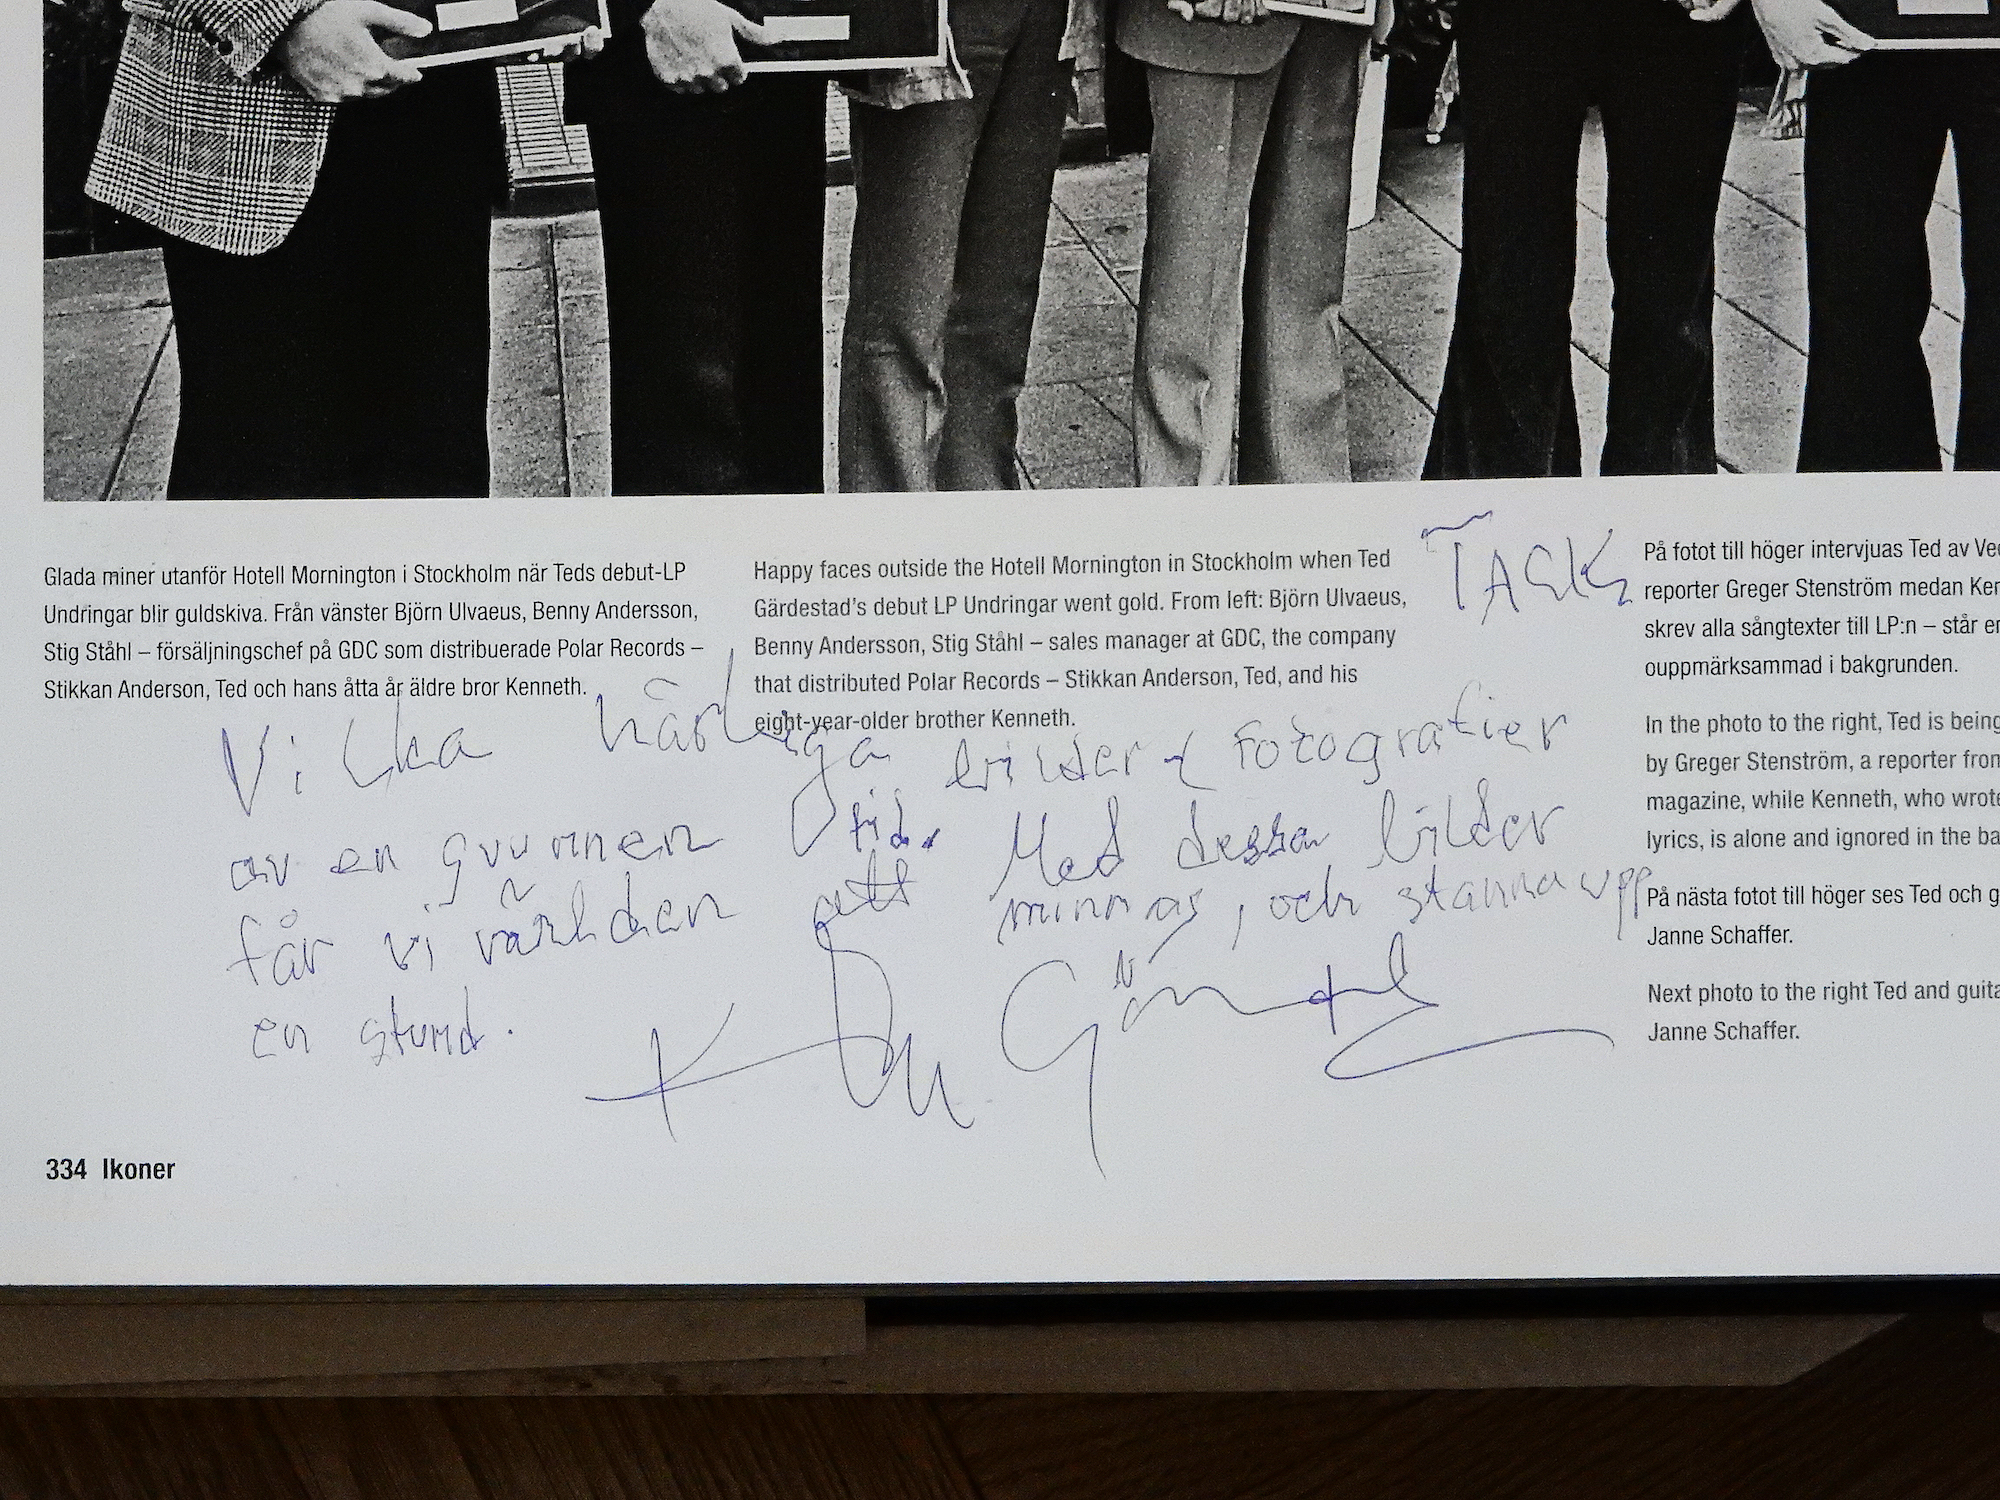 Glada miner utanför Hotell Mornington i Stockholm när Teds debut-LP
Undringar blir guldskiva. Från vänster Björn Ulvaeus, Benny Andersson,
Stig Ståhl – försäljningschef på GDC som distribuerade Polar Records –
Stikkan Anderson, Ted och hans åtta år äldre bror Kenneth.
Happy faces outside the Hotell Mornington in Stockholm when Ted
Gärdestad's debut LP Undringar went gold. From left: Björn Ulvaeus,
Benny Andersson, Stig Ståhl – sales manager at GDC, the company
that distributed Polar Records – Stikkan Anderson, Ted, and his
eight-year-older brother Kenneth.
TACK
På fotot till höger intervjuas Ted av Ve
reporter Greger Stenström medan Ken
skrev alla sångtexter till LP:n – står e
ouppmärksammad i bakgrunden.
In the photo to the right, Ted is being
by Greger Stenström, a reporter from
magazine, while Kenneth, who wrote
lyrics, is alone and ignored in the ba
På nästa fotot till höger ses Ted och g
Janne Schaffer.
Next photo to the right Ted and guita
Janne Schaffer.
Vilka härliga bilder & fotografier
av en svunnen tid. Med dessa bilder
får vi världen att minnas, och stanna upp
en stund.
334 Ikoner